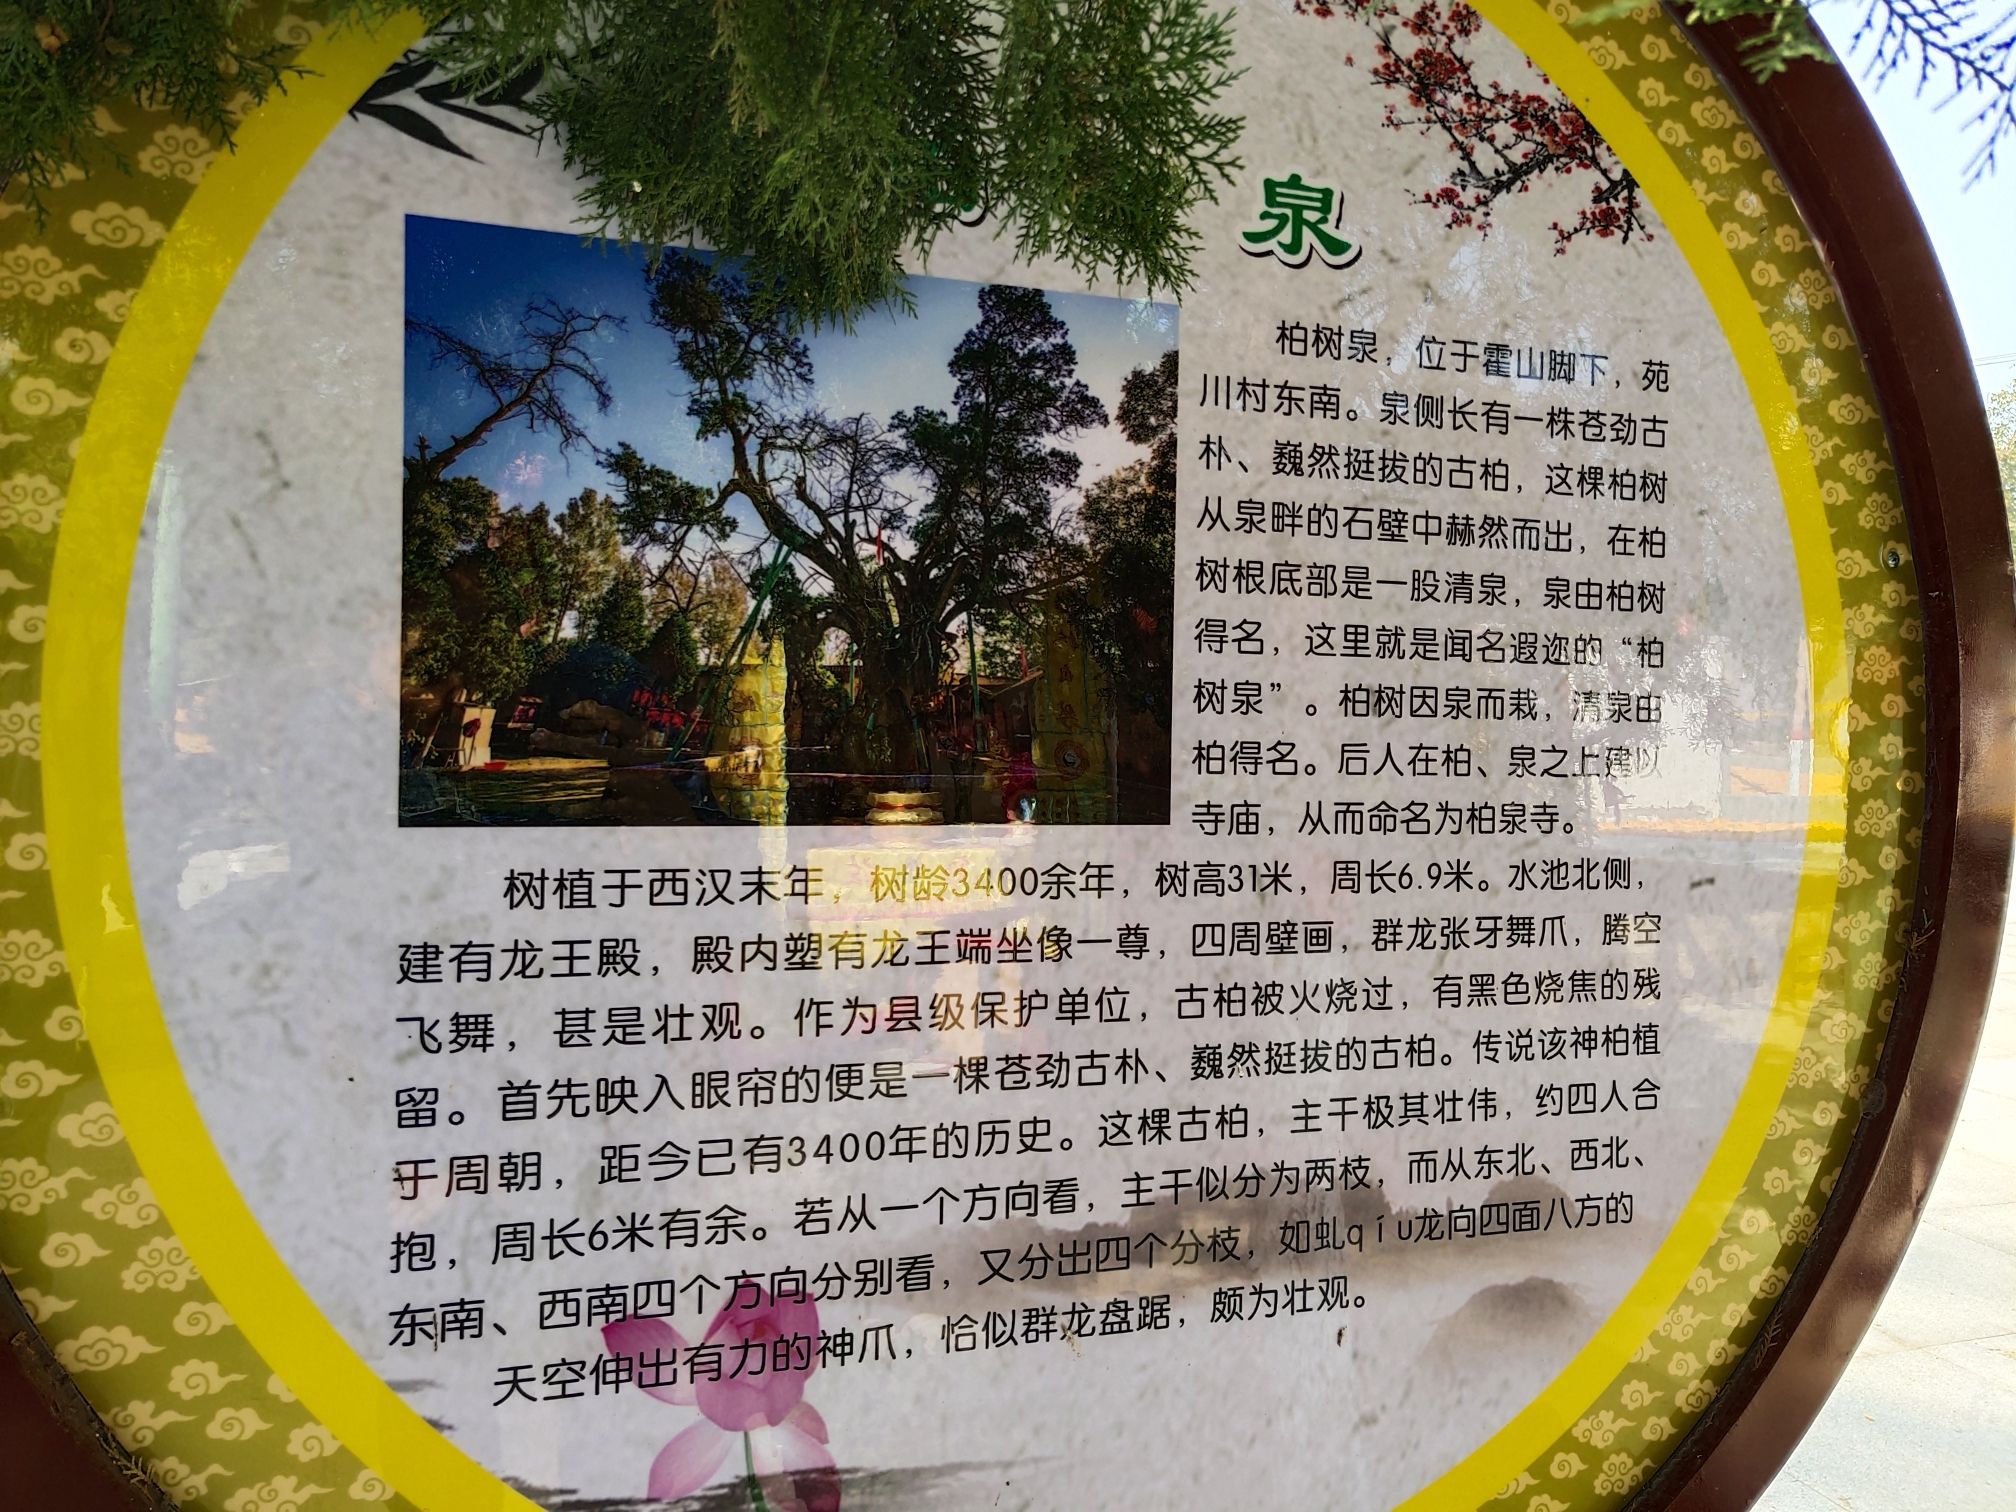 泉
柏树泉，位于霍山脚下，苑
川村东南。泉侧长有一株苍劲古
朴、巍然挺拔的古柏，这棵柏树
从泉畔的石壁中赫然而出，在柏
树根底部是一股清泉，泉由柏树
得名，这里就是闻名遐迩的“柏
树泉”。柏树因泉而栽，清泉由
柏得名。后人在柏、泉之上建以
寺庙，从而命名为柏泉寺。
树植于西汉末年，树龄3400余年，树高31米，周长6.9米。水池北侧，
建有龙王殿，殿内塑有龙王端坐像一尊，四周壁画，群龙张牙舞爪，腾空
飞舞，甚是壮观。作为县级保护单位，古柏被火烧过，有黑色烧焦的残
留。首先映入眼帘的便是一棵苍劲古朴、巍然挺拔的古柏。传说该神柏植
于周朝，距今已有3400年的历史。这棵古柏，主干极其壮伟，约四人合
抱，周长6米有余。若从一个方向看，主干似分为两枝，而从东北、西北、
东南、西南四个方向分别看，又分出四个分枝，如虬qíu龙向四面八方的
天空伸出有力的神爪，恰似群龙盘踞，颇为壮观。